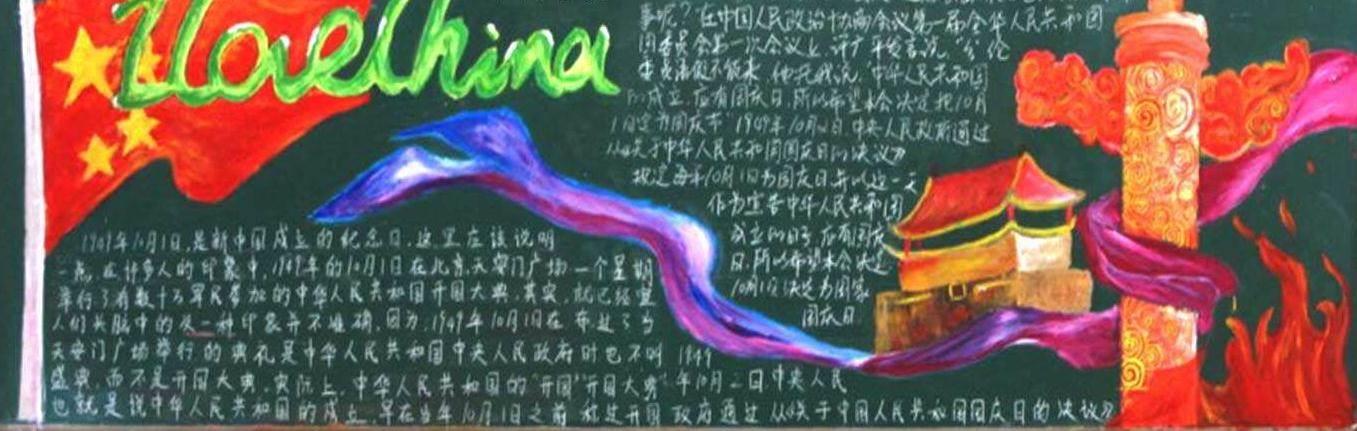 I Love China
事呢?在中国人民政治协商会议第一届全
委员会第一次会议上
他托我说,中华人民共和国
的成立,应有国庆日,所以希望本会决定把10月
1日定为国庆节 1949年10月2日,中央人民政府通过
从《关于中华人民共和国国庆日的决议》
规定每年10月1日为国庆日并以这一天
作为宣告中华人民共和国
成立的日子,应有国庆
日,所以希望本会决定
10月1日决定为国家
国庆日
1949年10月1日,是新中国成立的纪念日.这里应该说明
一点在许多人的印象中,1949年的10月1日在北京天安门广场一个星期
举行了有数十万军民参加的中华人民共和国开国大典.其实,就已经宣
人们头脑中的这一种印象并不准确.因为,1949年10月1日在
天安门广场举行的典礼是中华人民共和国中央人民政府 1949
盛典,而不是开国大典.实际上,中华人民共和国的"开国"开国大典 年10月2日中央人民
也就是说中华人民共和国的成立,早在当年10月1日之前 政府通过 从《关于中国人民共和国国庆日的决议》